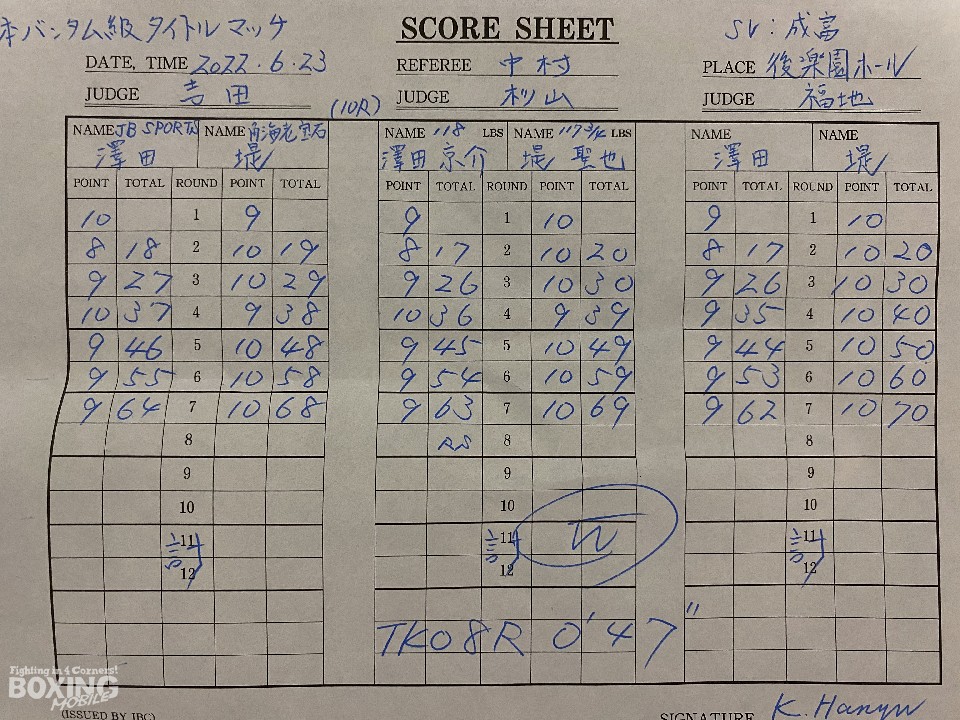 本バンタム級タイトルマッチ SCORE SHEET SV:成富
DATE, TIME 2022.6.23 REFEREE 中村 PLACE 後楽園ホール
JUDGE 吉田 (10R) JUDGE 杉山 JUDGE 福地
NAME JB SPORTS NAME 角海老宝石 NAME 118 LBS NAME 117 3/4 LBS NAME NAME
澤田 堤 澤田 京介 堤 聖也 澤田 堤
POINT TOTAL ROUND POINT TOTAL POINT TOTAL ROUND POINT TOTAL POINT TOTAL ROUND POINT TOTAL
10 1 9 9 1 10 9 1 10
8 18 2 10 19 8 17 2 10 20 8 17 2 10 20
9 27 3 10 29 9 26 3 10 30 9 26 3 10 30
10 37 4 9 38 10 36 4 9 39 9 35 4 10 40
9 46 5 10 48 9 45 5 10 49 9 44 5 10 50
9 55 6 10 58 9 54 6 10 59 9 53 6 10 60
9 64 7 10 68 9 63 7 10 69 9 62 7 10 70
8 8 8
9 9 9
10 10 10
11 11 W 11
12 12 12
TKO 8R 0'47"
Fighting in 4 Corners!
BOXING
MOBILE
(ISSUED BY JBC) SIGNATURE K. Hanyu